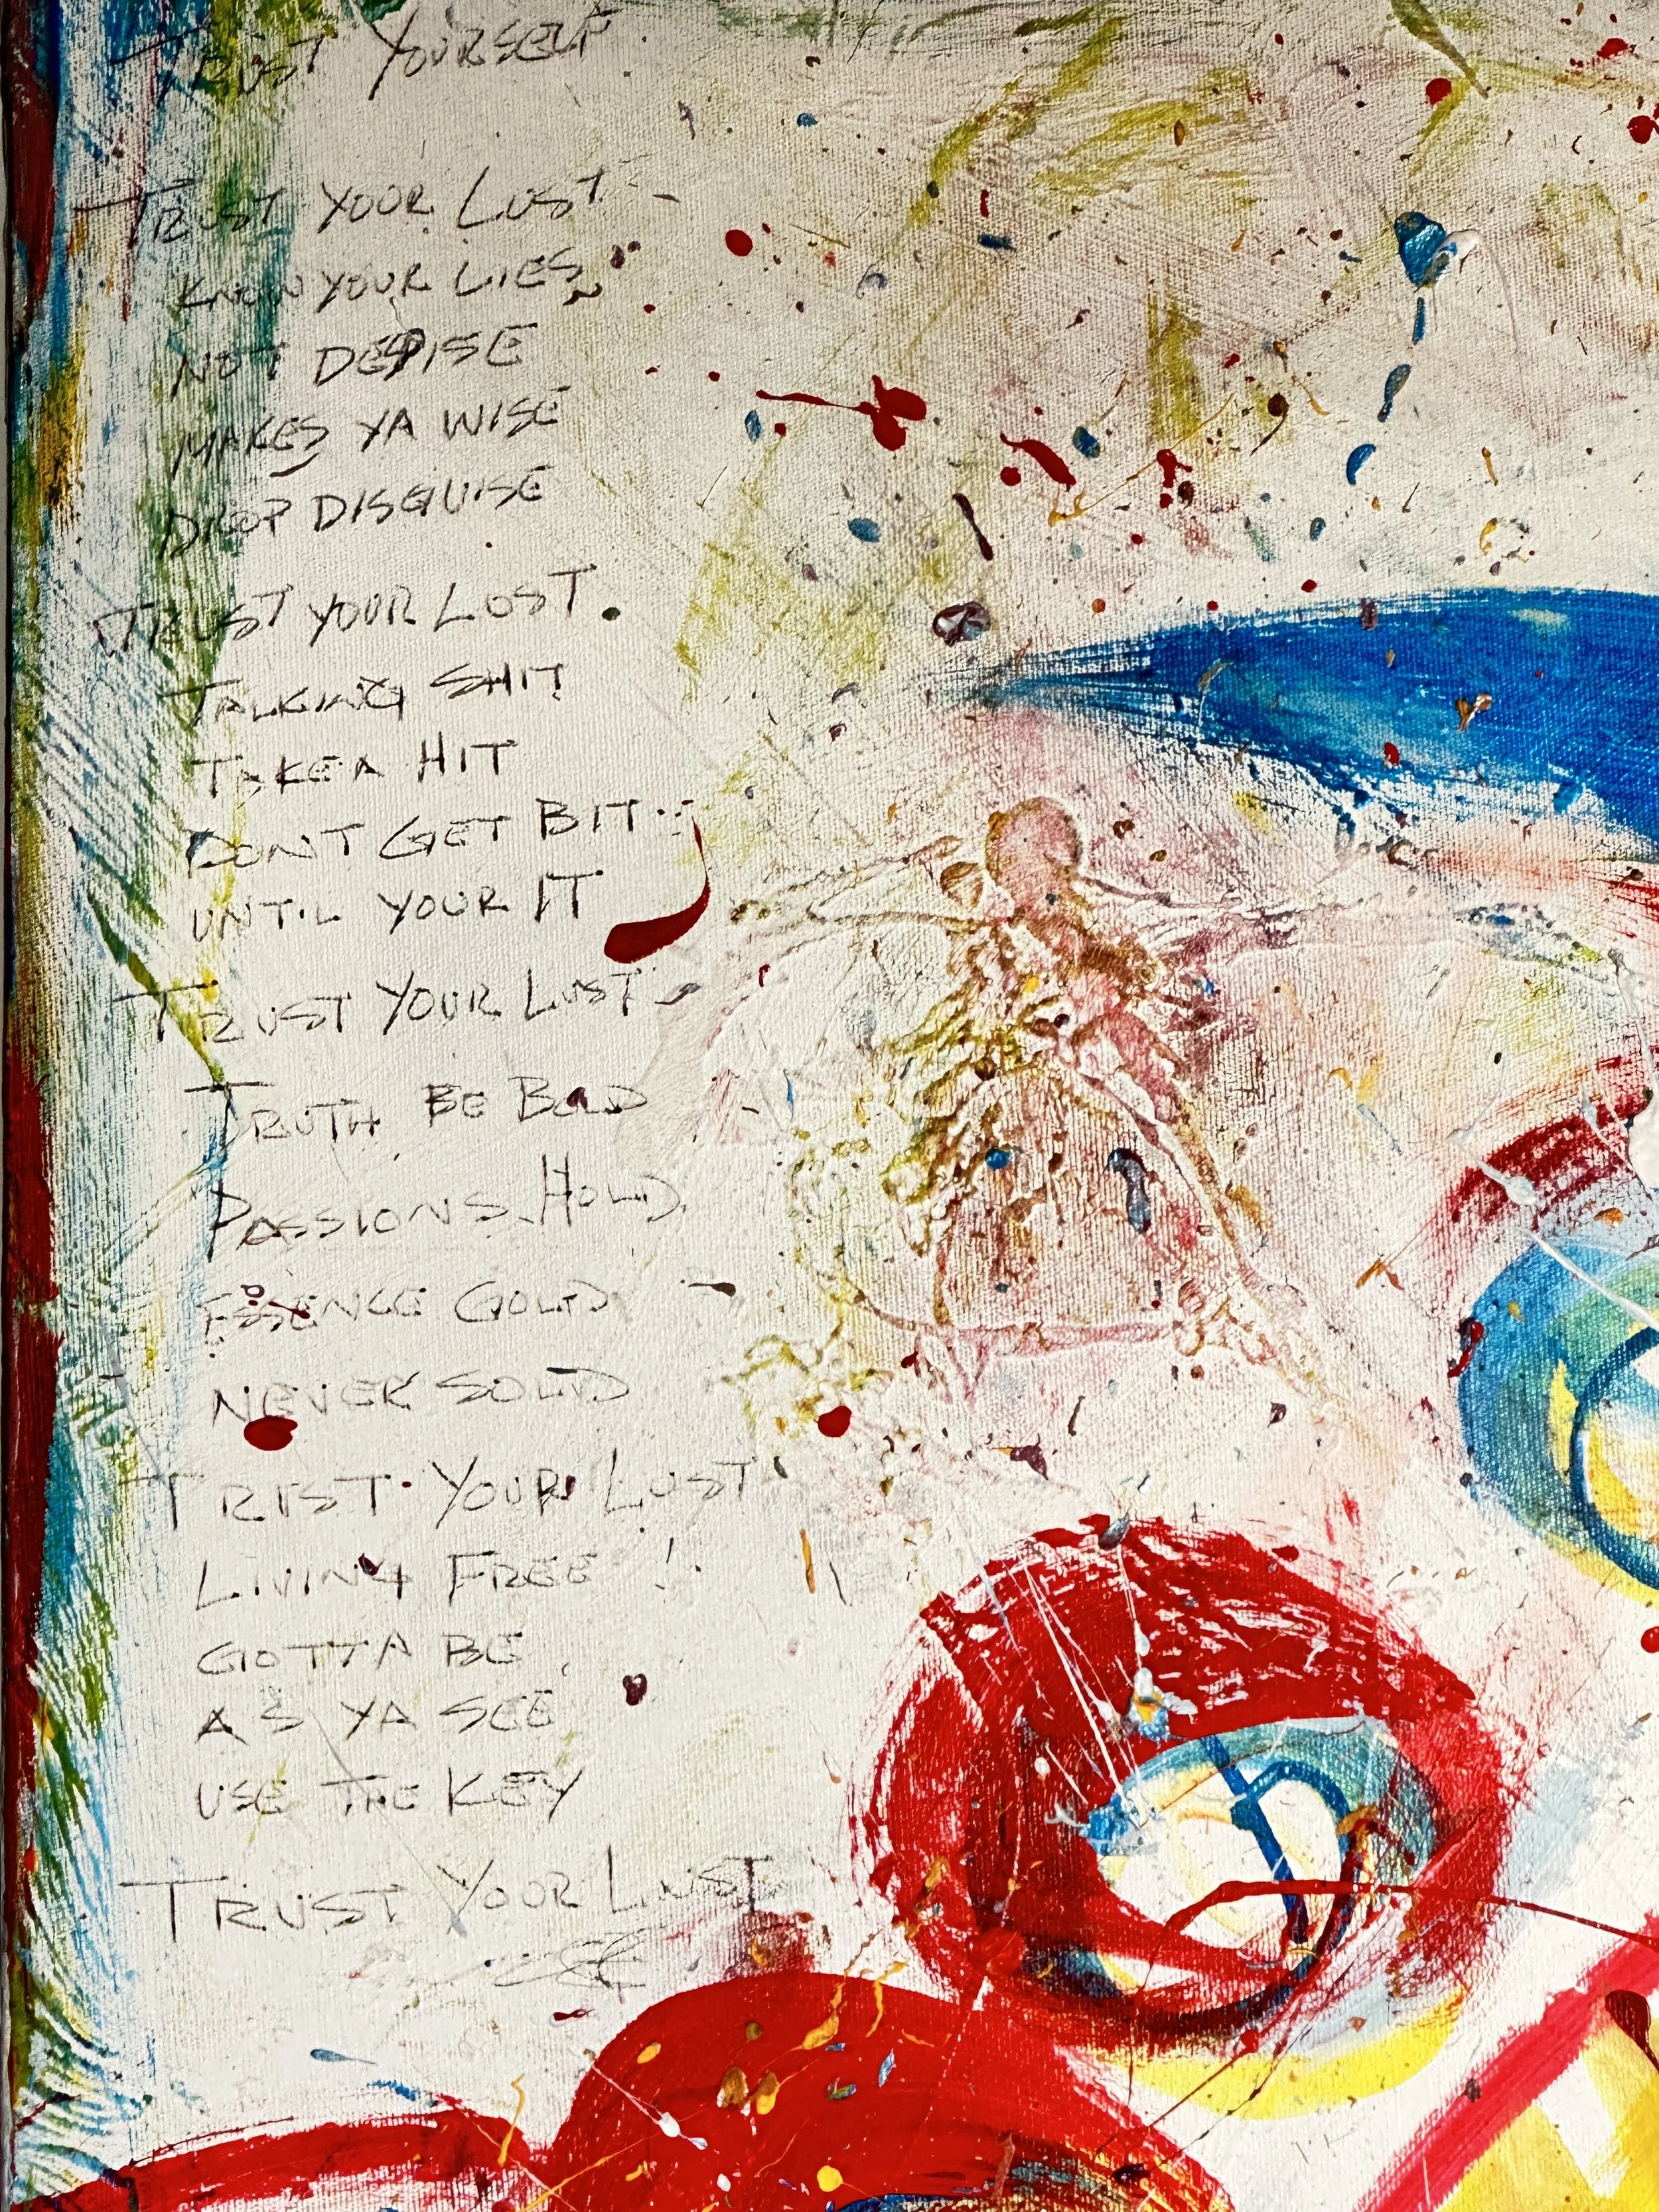 TRUST YOURSELF
TRUST YOUR LUST
KNOW YOUR LIES
NOT DESPISE
MAKES YA WISE
DROP DISGUISE
TRUST YOUR LOST.
TALKING SHIT
TAKEN HIT
DONT GET BIT
UNTIL YOUR IT
TRUST YOUR LUST
TRUTH BE BOLD
PASSIONS HOLD
ESSENCE GOLD
NEVER SOLD
TRUST YOUR LUST
LIVING FREE !
GOTTA BE
AS YA SEE
USE THE KEY
TRUST YOUR LUST